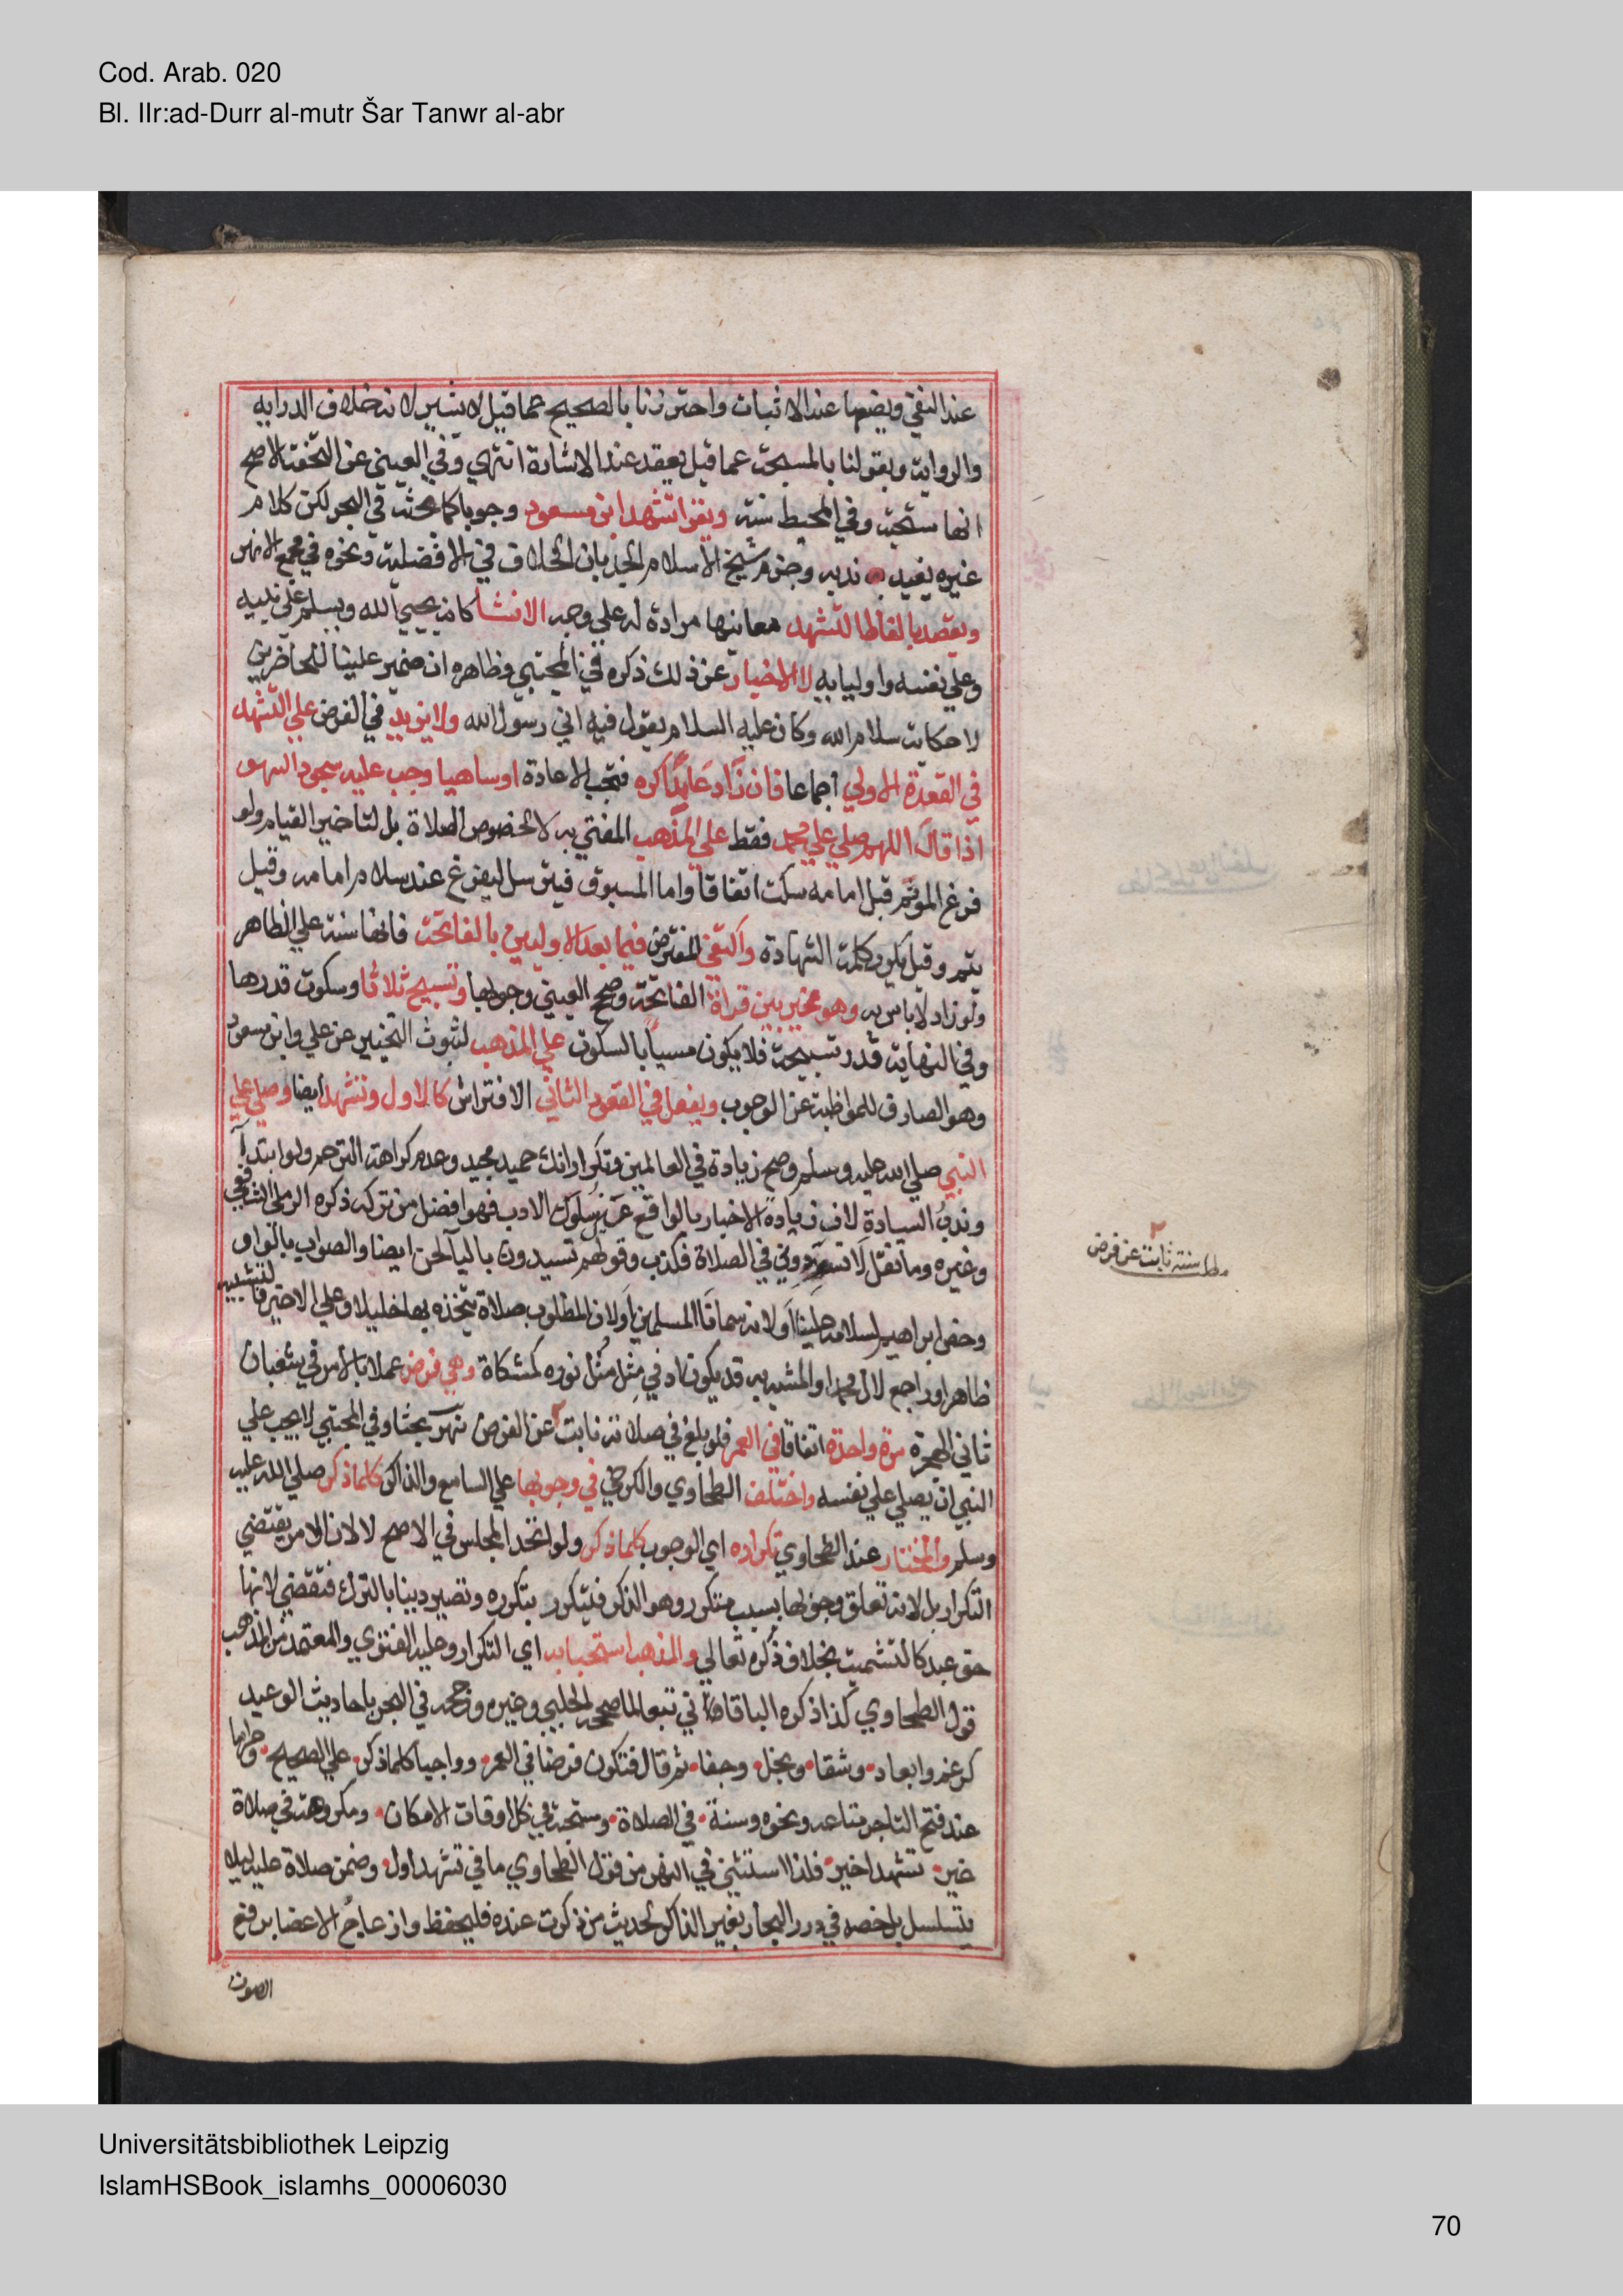 Cod. Arab. 020
Bl. IIr:ad-Durr al-mutr Šar Tanwr al-abr
عند النفي ويضعها عند الاثبات واحترزنا بالصحيح عما قيل لا يشير لانه خلاف الدرايه
والرواية وبقولنا بالمسبحة عما قيل يعقد عند الاشارة انتهي وفي العيني عن التحفة الاصح
انها ستحبة وفي المحيط سنة ويقرا تشهد ابن مسعود وجوبا كما بحثه في البحر لكن كلام
غيره يفيد ندبه وجزم شيخ الاسلام الجد بان الخلاف في الافضلية ونحوه في مجمع الانهر
ويقصد بالفاظ التشهد معانيها مرادة له علي وجه الانشا كانه يحيي الله ويسلم علي نبيه
وعلي نفسه واوليايه لا الاخبار عن ذلك ذكره في المجتبي وظاهره ان ضمير علينا للحاضرين
لا حكاية سلام الله وكان عليه السلام يقول فيه اني رسول الله ولا يزيد في الفرض علي التشهد
في القعدة الاولي اجماعا فان زاد عامدا كره فتجب الاعادة او ساهيا وجب عليه سجود السهو
اذا قال اللهم صلي علي محمد فقط علي المذهب المفتي به لا لخصوص الصلاة بل لتاخير القيام ولو
فرغ الموتم قبل امامه سكت اتفاقا واما المسبوق فيترسل ليفرغ عند سلام امامه وقيل
يتم وقيل يكرر كلمة الشهادة واكتفي المفترض فيما بعد الاوليين بالفاتحة فانها سنة علي الظاهر
ولو زاد لا باس به وهو مخير بين قراة الفاتحة وصح العيني وجوبها وتسبيح ثلاثا وسكوت قدرها
وفي النهاية قدر تسبيحة فلا يكون مسيا بالسكوت علي المذهب لثبوت التخيير عن علي وابن مسعود
وهو الصارف للمواظبة عن الوجوب ويفعل في القعود الثاني الافتراش كالاول وتشهد ايضا وصلي علي
النبي صلي الله عليه وسلم وصح زيادة في العالمين وتكرار انك حميد مجيد وعدم كراهة الترحم ولو ابتدا
وندب السيادة لان زيادة الاخبار بالواقع عين سلوك الادب فهو افضل من تركه ذكره الرملي الشافعي
وغيره وما نقل لا تسودوني في الصلاة فكذب وقولهم تسيدون باليا لحن ايضا والصواب بالواو
وخص ابراهيم لسلامه علينا او لانه سمانا المسلمين او لان المطلوب صلاة يتخذه بها خليلا وعلي الاخير فالتشبيه
ظاهر او راجع لال محمد او المشبه به قد يكون ادني مثل مثل نوره كمشكاة وهي فرض عملا بالامر في شعبان
ثاني الهجرة مرة واحدة اتفاقا في العمر فلو بلغ في صلاته نابت عن الفرض نهر بحثا وفي المجتبي لا يجب علي
النبي ان يصلي علي نفسه واختلف الطحاوي والكرخي في وجوبها علي السامع والذاكر كلما ذكر صلي الله عليه
وسلم والمختار عند الطحاوي تكراره اي الوجوب كلما ذكر ولو اتحد المجلس في الاصح لا لان الامر يقتضي
التكرار بل لانه تعلق وجوبها بسبب متكرر وهو الذكر فيتكرر بتكرره وتصير دينا بالترك فتقضي لانها
حق عبد كالتشميت بخلاف ذكره تعالي والمذهب استحبابه اي التكرار وعليه الفتوي والمعتمد من المذهب
قول الطحاوي كذا ذكره الباقاني تبعا لما صححه الحلبي وغيره ورجحه في البحر باحاديث الوعيد
كرغم وابعاد وشقا وبخل وجفا ثم قال فتكون فرضا في العمر وواجبا كلما ذكر علي الصحيح وحراما
عند فتح التاجر متاعه ونحوه وسنة في الصلاة ومستحبة في كل اوقات الامكان ومكروهة في صلاة
غير تشهد اخير فلذا استثني في النهر من قول الطحاوي ما في تشهد اول وضمن صلاة عليه ليلا
يتسلسل بل خصه في درر البحار بغير الذاكر لحديث من ذكرت عنده فليحفظ وازعاج الاعضا برفع
الصوت
٢
مط سنة نابت عن فرض
Universitätsbibliothek Leipzig
IslamHSBook_islamhs_00006030
70